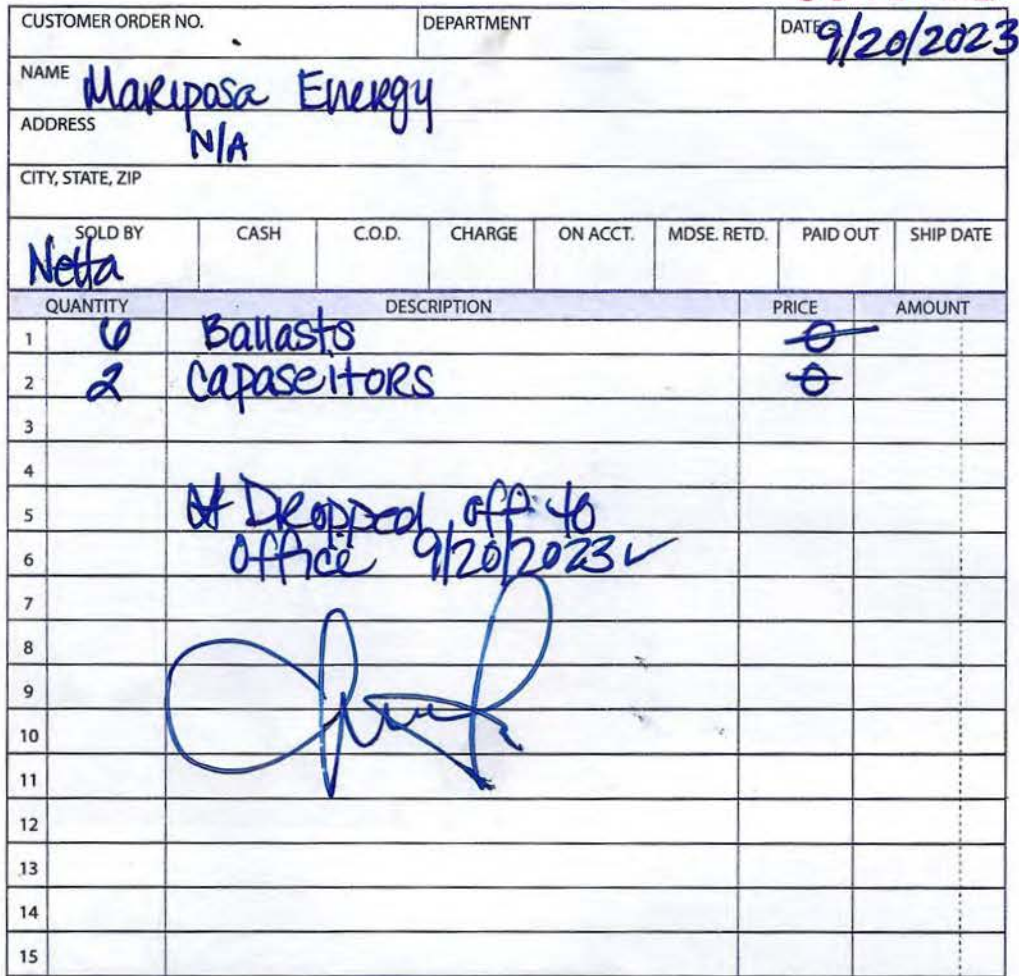 CUSTOMER ORDER NO. DEPARTMENT DATE 9/20/2023
NAME Mariposa Energy
ADDRESS N/A
CITY, STATE, ZIP
SOLD BY CASH C.O.D. CHARGE ON ACCT. MDSE. RETD. PAID OUT SHIP DATE
Netta
QUANTITY DESCRIPTION PRICE AMOUNT
1 6 Ballasts 0
2 2 Capaseitors 0
3
4
5 Dropped off to
6 office 9/20/2023 ✓
7
8
9
10
11
12
13
14
15